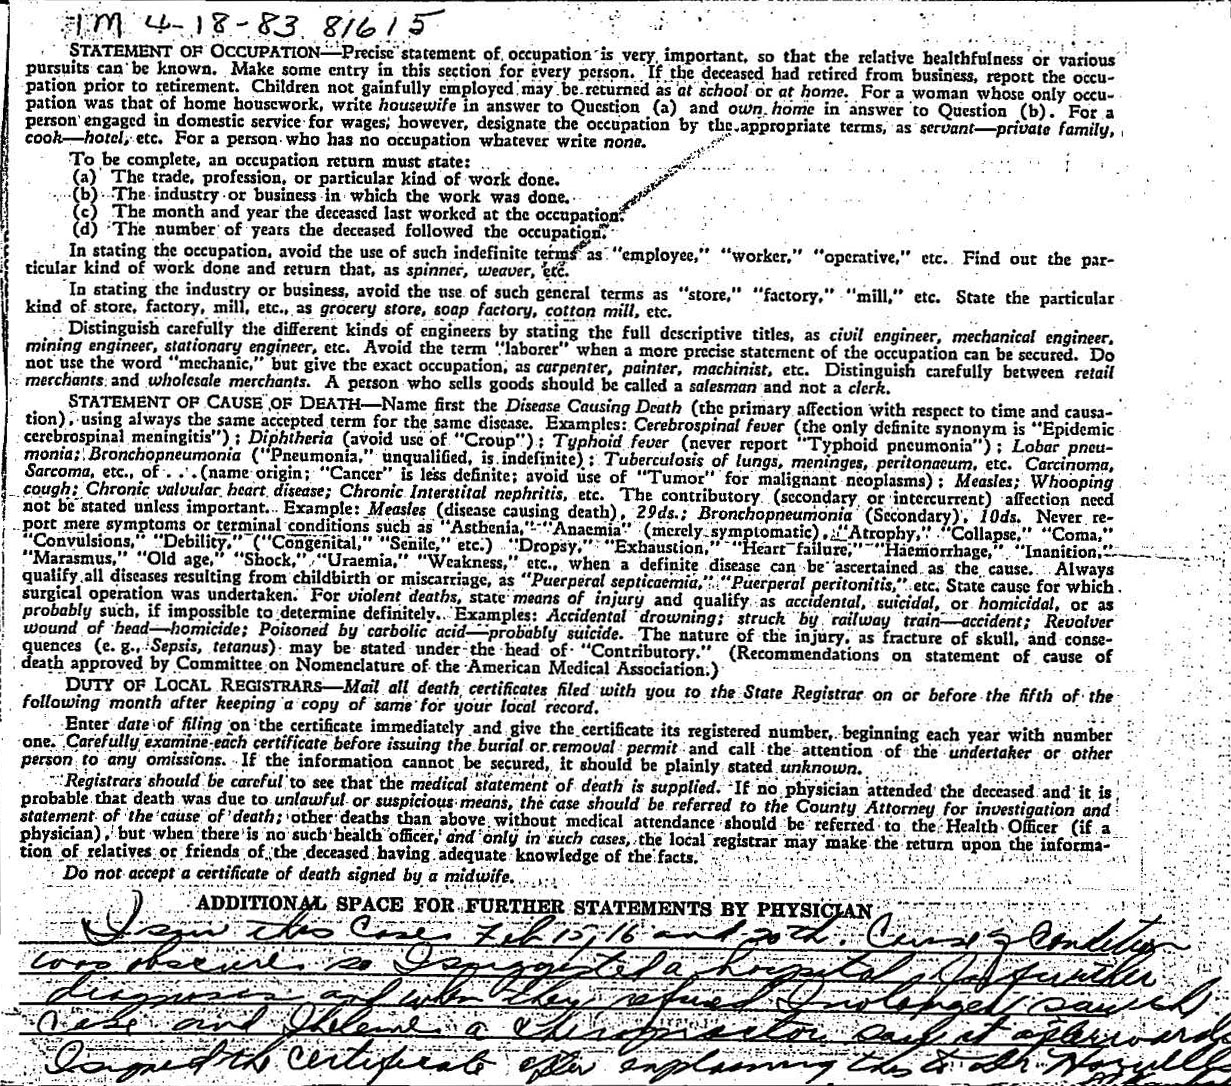 IM 4-18-83 81615
STATEMENT OF OCCUPATION—Precise statement of occupation is very important, so that the relative healthfulness or various
pursuits can be known. Make some entry in this section for every person. If the deceased had retired from business, report the occu-
pation prior to retirement. Children not gainfully employed may be returned as at school or at home. For a woman whose only occu-
pation was that of home housework, write housewife in answer to Question (a) and own home in answer to Question (b). For a
person engaged in domestic service for wages, however, designate the occupation by the appropriate terms, as servant—private family,
cook—hotel, etc. For a person who has no occupation whatever write none.
To be complete, an occupation return must state:
(a) The trade, profession, or particular kind of work done.
(b) The industry or business in which the work was done.
(c) The month and year the deceased last worked at the occupation.
(d) The number of years the deceased followed the occupation.
In stating the occupation, avoid the use of such indefinite terms as "employee," "worker," "operative," etc. Find out the par-
ticular kind of work done and return that, as spinner, weaver, etc.
In stating the industry or business, avoid the use of such general terms as "store," "factory," "mill," etc. State the particular
kind of store, factory, mill, etc., as grocery store, soap factory, cotton mill, etc.
Distinguish carefully the different kinds of engineers by stating the full descriptive titles, as civil engineer, mechanical engineer,
mining engineer, stationary engineer, etc. Avoid the term "laborer" when a more precise statement of the occupation can be secured. Do
not use the word "mechanic," but give the exact occupation, as carpenter, painter, machinist, etc. Distinguish carefully between retail
merchants and wholesale merchants. A person who sells goods should be called a salesman and not a clerk.
STATEMENT OF CAUSE OF DEATH—Name first the Disease Causing Death (the primary affection with respect to time and causa-
tion), using always the same accepted term for the same disease. Examples: Cerebrospinal fever (the only definite synonym is "Epidemic
cerebrospinal meningitis"); Diphtheria (avoid use of "Croup"); Typhoid fever (never report "Typhoid pneumonia"); Lobar pneu-
monia; Bronchopneumonia ("Pneumonia," unqualified, is indefinite); Tuberculosis of lungs, meninges, peritonaeum, etc. Carcinoma,
Sarcoma, etc., of . . . (name origin; "Cancer" is less definite; avoid use of "Tumor" for malignant neoplasms); Measles; Whooping
cough; Chronic valvular heart disease; Chronic Interstital nephritis, etc. The contributory (secondary or intercurrent) affection need
not be stated unless important. Example: Measles (disease causing death), 29ds.; Bronchopneumonia (Secondary), 10ds. Never re-
port mere symptoms or terminal conditions such as "Asthenia," "Anaemia" (merely symptomatic), "Atrophy," "Collapse," "Coma,"
"Convulsions," "Debility," ("Congenital," "Senile," etc.) "Dropsy," "Exhaustion," "Heart failure," "Haemorrhage," "Inanition,"
"Marasmus," "Old age," "Shock," "Uraemia," "Weakness," etc., when a definite disease can be ascertained as the cause. Always
qualify all diseases resulting from childbirth or miscarriage, as "Puerperal septicaemia," "Puerperal peritonitis," etc. State cause for which
surgical operation was undertaken. For violent deaths, state means of injury and qualify as accidental, suicidal, or homicidal, or as
probably such, if impossible to determine definitely. Examples: Accidental drowning; struck by railway train—accident; Revolver
wound of head—homicide; Poisoned by carbolic acid—probably suicide. The nature of the injury, as fracture of skull, and conse-
quences (e. g., Sepsis, tetanus) may be stated under the head of "Contributory." (Recommendations on statement of cause of
death approved by Committee on Nomenclature of the American Medical Association.)
DUTY OF LOCAL REGISTRARS—Mail all death certificates filed with you to the State Registrar on or before the fifth of the
following month after keeping a copy of same for your local record.
Enter date of filing on the certificate immediately and give the certificate its registered number, beginning each year with number
one. Carefully examine each certificate before issuing the burial or removal permit and call the attention of the undertaker or other
person to any omissions. If the information cannot be secured, it should be plainly stated unknown.
Registrars should be careful to see that the medical statement of death is supplied. If no physician attended the deceased and it is
probable that death was due to unlawful or suspicious means, the case should be referred to the County Attorney for investigation and
statement of the cause of death; other deaths than above without medical attendance should be referred to the Health Officer (if a
physician), but when there is no such health officer, and only in such cases, the local registrar may make the return upon the informa-
tion of relatives or friends of the deceased having adequate knowledge of the facts.
Do not accept a certificate of death signed by a midwife.
ADDITIONAL SPACE FOR FURTHER STATEMENTS BY PHYSICIAN
I saw this Case Feb 15, 16 and 20th. Cause of Condition
was obscure so I suggested a hospital for further
diagnosis and when they refused I no longer saw the
Case and I believe a chiropractor saw it afterwards
I signed the Certificate after explaining this to Dr.